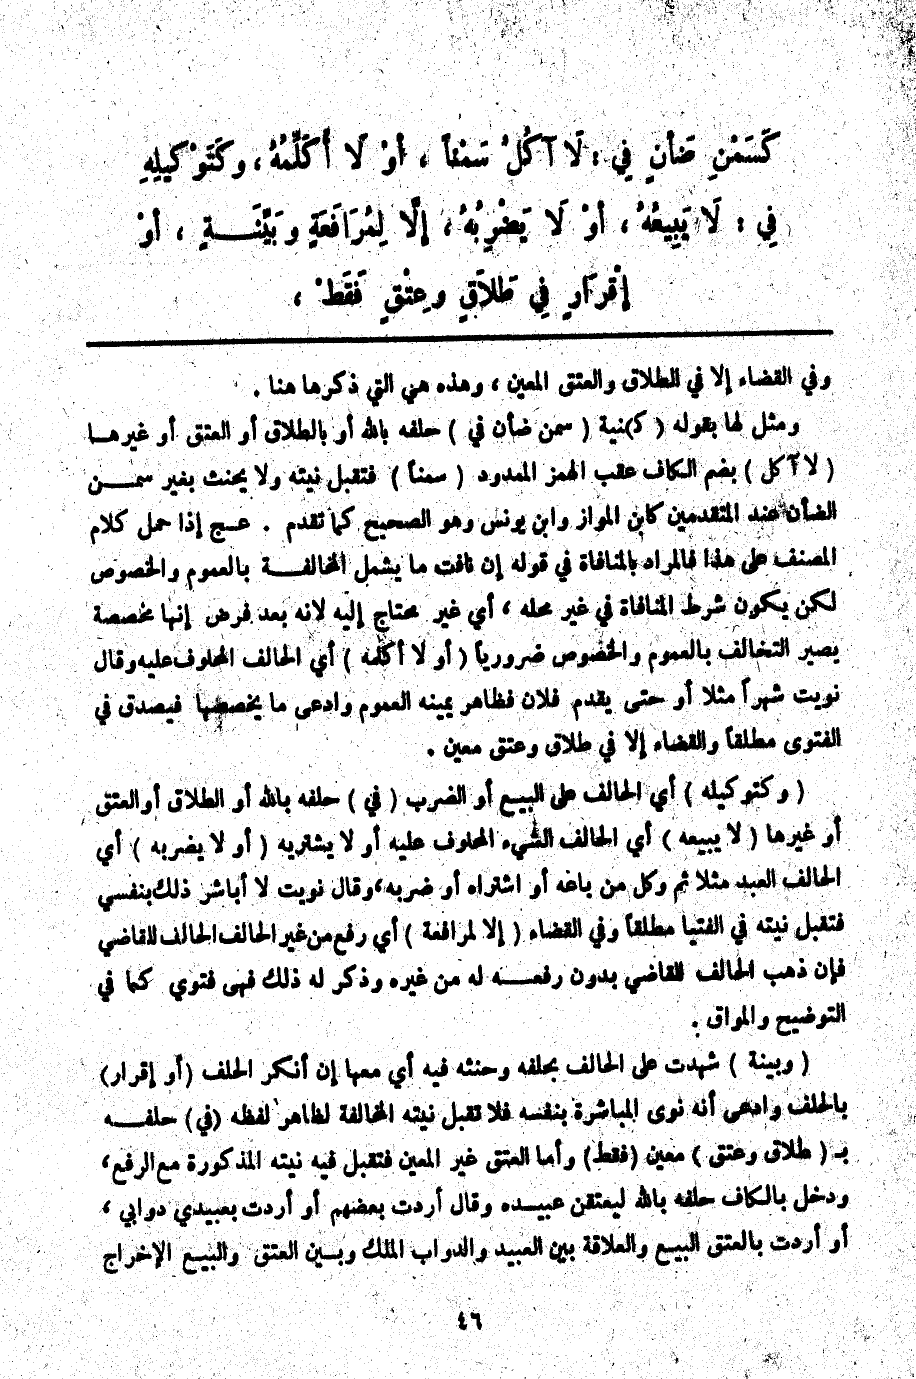 كَسَمْنِ ضَأْنٍ فِي : لَا آكُلُ سَمْناً ، أَوْ لَا أُكَلِّمُهُ ، وكَتَوْكِيلِهِ
فِي : لَا يَبِيعُهُ ، أَوْ لَا يَضْرِبُهُ ، إِلَّا لِمُرَافَعَةٍ وبَيِّنَـــةٍ ، أَوْ
إِقْرَارٍ فِي طَلاَقٍ وعِتْقٍ فَقَطْ ،
وفي القضاء إلا في الطلاق والعتق المعين ، وهذه هي التي ذكرها هنا .
ومثل لها بقوله ( كـ)نية ( سمن ضأن في ) حلفه بالله أو بالطلاق أو العتق أو غيرهـا
( لا آكل ) بضم الكاف عقب الهمز الممدود ( سمناً ) فتقبل نيته ولا يحنث بغير سمـــن
الضأن عند المتقدمين كابن المواز وابن يونس وهو الصحيح كما تقدم . عـج إذا حمل كلام
المصنف على هذا فالمراد بالمنافاة في قوله إن نافت ما يشمل المخالفـــة بالعموم والخصوص
لكن يكون شرط المنافاة في غير محله ، أي غير محتاج إليه لانه بعد فرض إنها مخصصة
يصير التخالف بالعموم والخصوص ضرورياً ( أو لا أكلمه ) أي الحالف المحلوف عليه وقال
نويت شهراً مثلا أو حتى يقدم فلان فظاهر يمينه العموم وادعى ما يخصصها فيصدق في
الفتوى مطلقاً والقضاء إلا في طلاق وعتق معين .
( وكتوكيله ) أي الحالف على البيـع أو الضرب ( في ) حلفه بالله أو الطلاق أوالعتق
أو غيرها ( لا يبيعه ) أي الحالف الشيء المحلوف عليه أو لا يشتريه ( أو لا يضربه ) أي
الحالف العبد مثلا ثم وكل من باعه أو اشتراه أو ضربه،وقال نويت لا أباشر ذلك بنفسي
فتقبل نيته في الفتيا مطلقاً وفي القضاء ( إلا لمرافعة ) أي رفع من غير الحالف الحالف للقاضي
فإن ذهب الحالف للقاضي بدون رفعـــه له من غيره وذكر له ذلك فهى فتوي كما في
التوضيح والمواق .
( وبينة ) شهدت على الحالف بحلفه وحنثه فيه أي معها إن أنكر الحلف (أو إقرار)
بالحلف وادعى أنه نوى المباشرة بنفسه فلا تقبل نيته المخالفة لظاهر لفظه (في) حلفـــه
بـ ( طلاق وعتق ) معين (فقط) وأما العتق غير المعين فتقبل فيه نيته المذكورة مع الرفع،
ودخل بالكاف حلفه بالله ليعتقن عبيـده وقال أردت بعضهم أو أردت بعبيدي دوابي ،
أو أردت بالعتق البيـع والعلاقة بين العبيد والدواب الملك وبـين العتق والبيـع الإخراج
٤٦